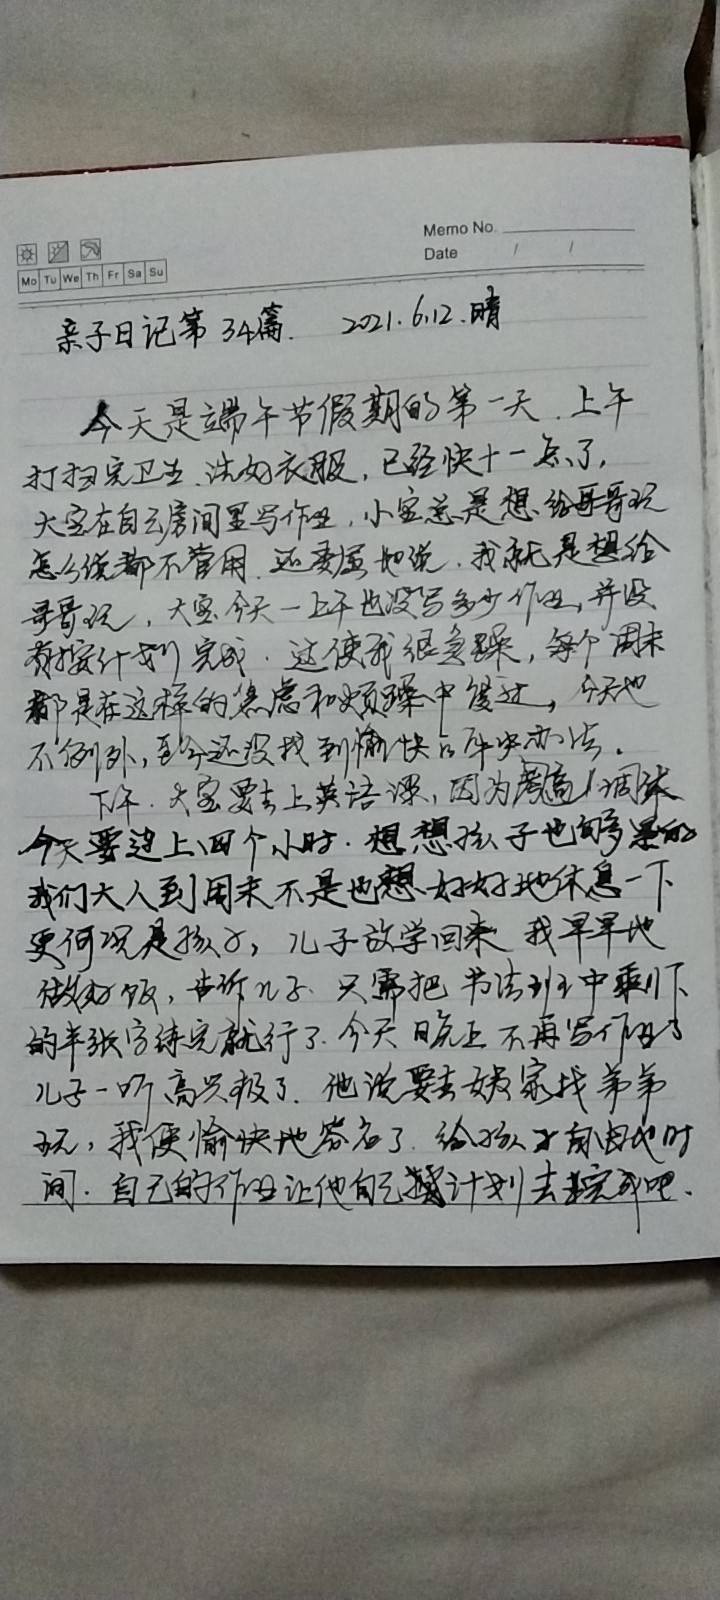 Memo No.
Date / /
Mo Tu We Th Fr Sa Su
亲子日记第34篇. 2021.6.12.晴
今天是端午节假期的第一天.上午
打扫完卫生.洗好衣服,已经快十一点了,
大宝在自己房间里写作业,小宝总是想给哥哥玩
怎么说都不管用.还委屈地说.我就是想给
哥哥玩,大宝今天一上午也没写多少作业,并没
有按计划完成.这使我很急躁,每个周末
都是在这样的焦虑和烦躁中度过,今天也
不例外,至今还没找到愉快的解决办法.
下午.大宝要去上英语课,因为 调课
今天要连上四个小时.想想孩子也够累的
我们大人到周末不是也想好好地休息一下
更何况是孩子,儿子放学回来 我早早地
做好饭,告诉儿子.只需把书法班中剩下
的半张字练完就行了.今天晚上不再写作业了
儿子一听高兴极了.他说要去姨家找弟弟
玩,我便愉快地答应了.给孩子自由地时
间.自己的作业让他自己按计划去完成吧.